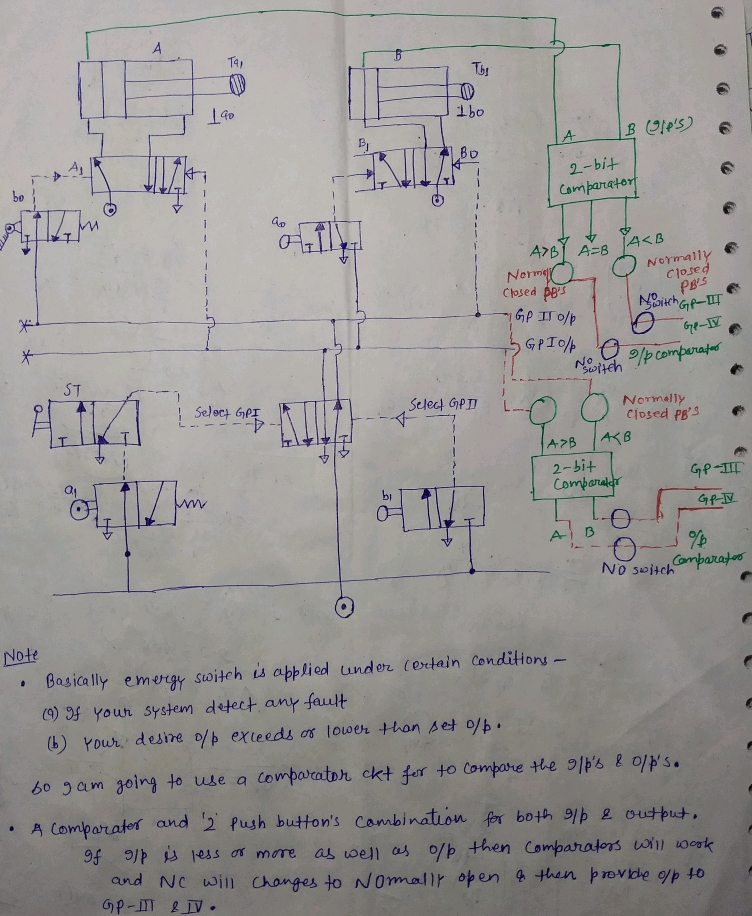 A
Ta1
B
Tb1
a0
b0
A B (I/P's)
2-bit
Comparator
A1
B1
B0
b0
a0
A>B A=B A<B
Normally
Closed
PB'S
Closed PB's
NO
Switch
GP-III
GP-IV
GP II O/p
GP I O/p
I/p comparator
NO
Switch
ST
Select GPI
Select GPII
Normally
Closed PB's
A>B A<B
2-bit
Comparator
GP-III
GP-IV
a1
b1
A B
O/p
Comparator
NO switch
Note
• Basically emergy switch is applied under certain conditions –
(a) If your system detect any fault
(b) Your desire o/p exceeds or lower than set o/p.
So I am going to use a comparator ckt for to compare the I/p's & O/p's.
• A Comparator and '2' Push button's Combination for both I/p & output.
If I/p is less or more as well as o/p then Comparators will work
and NC will Changes to NOrmally open & then provide o/p to
GP-III & IV.